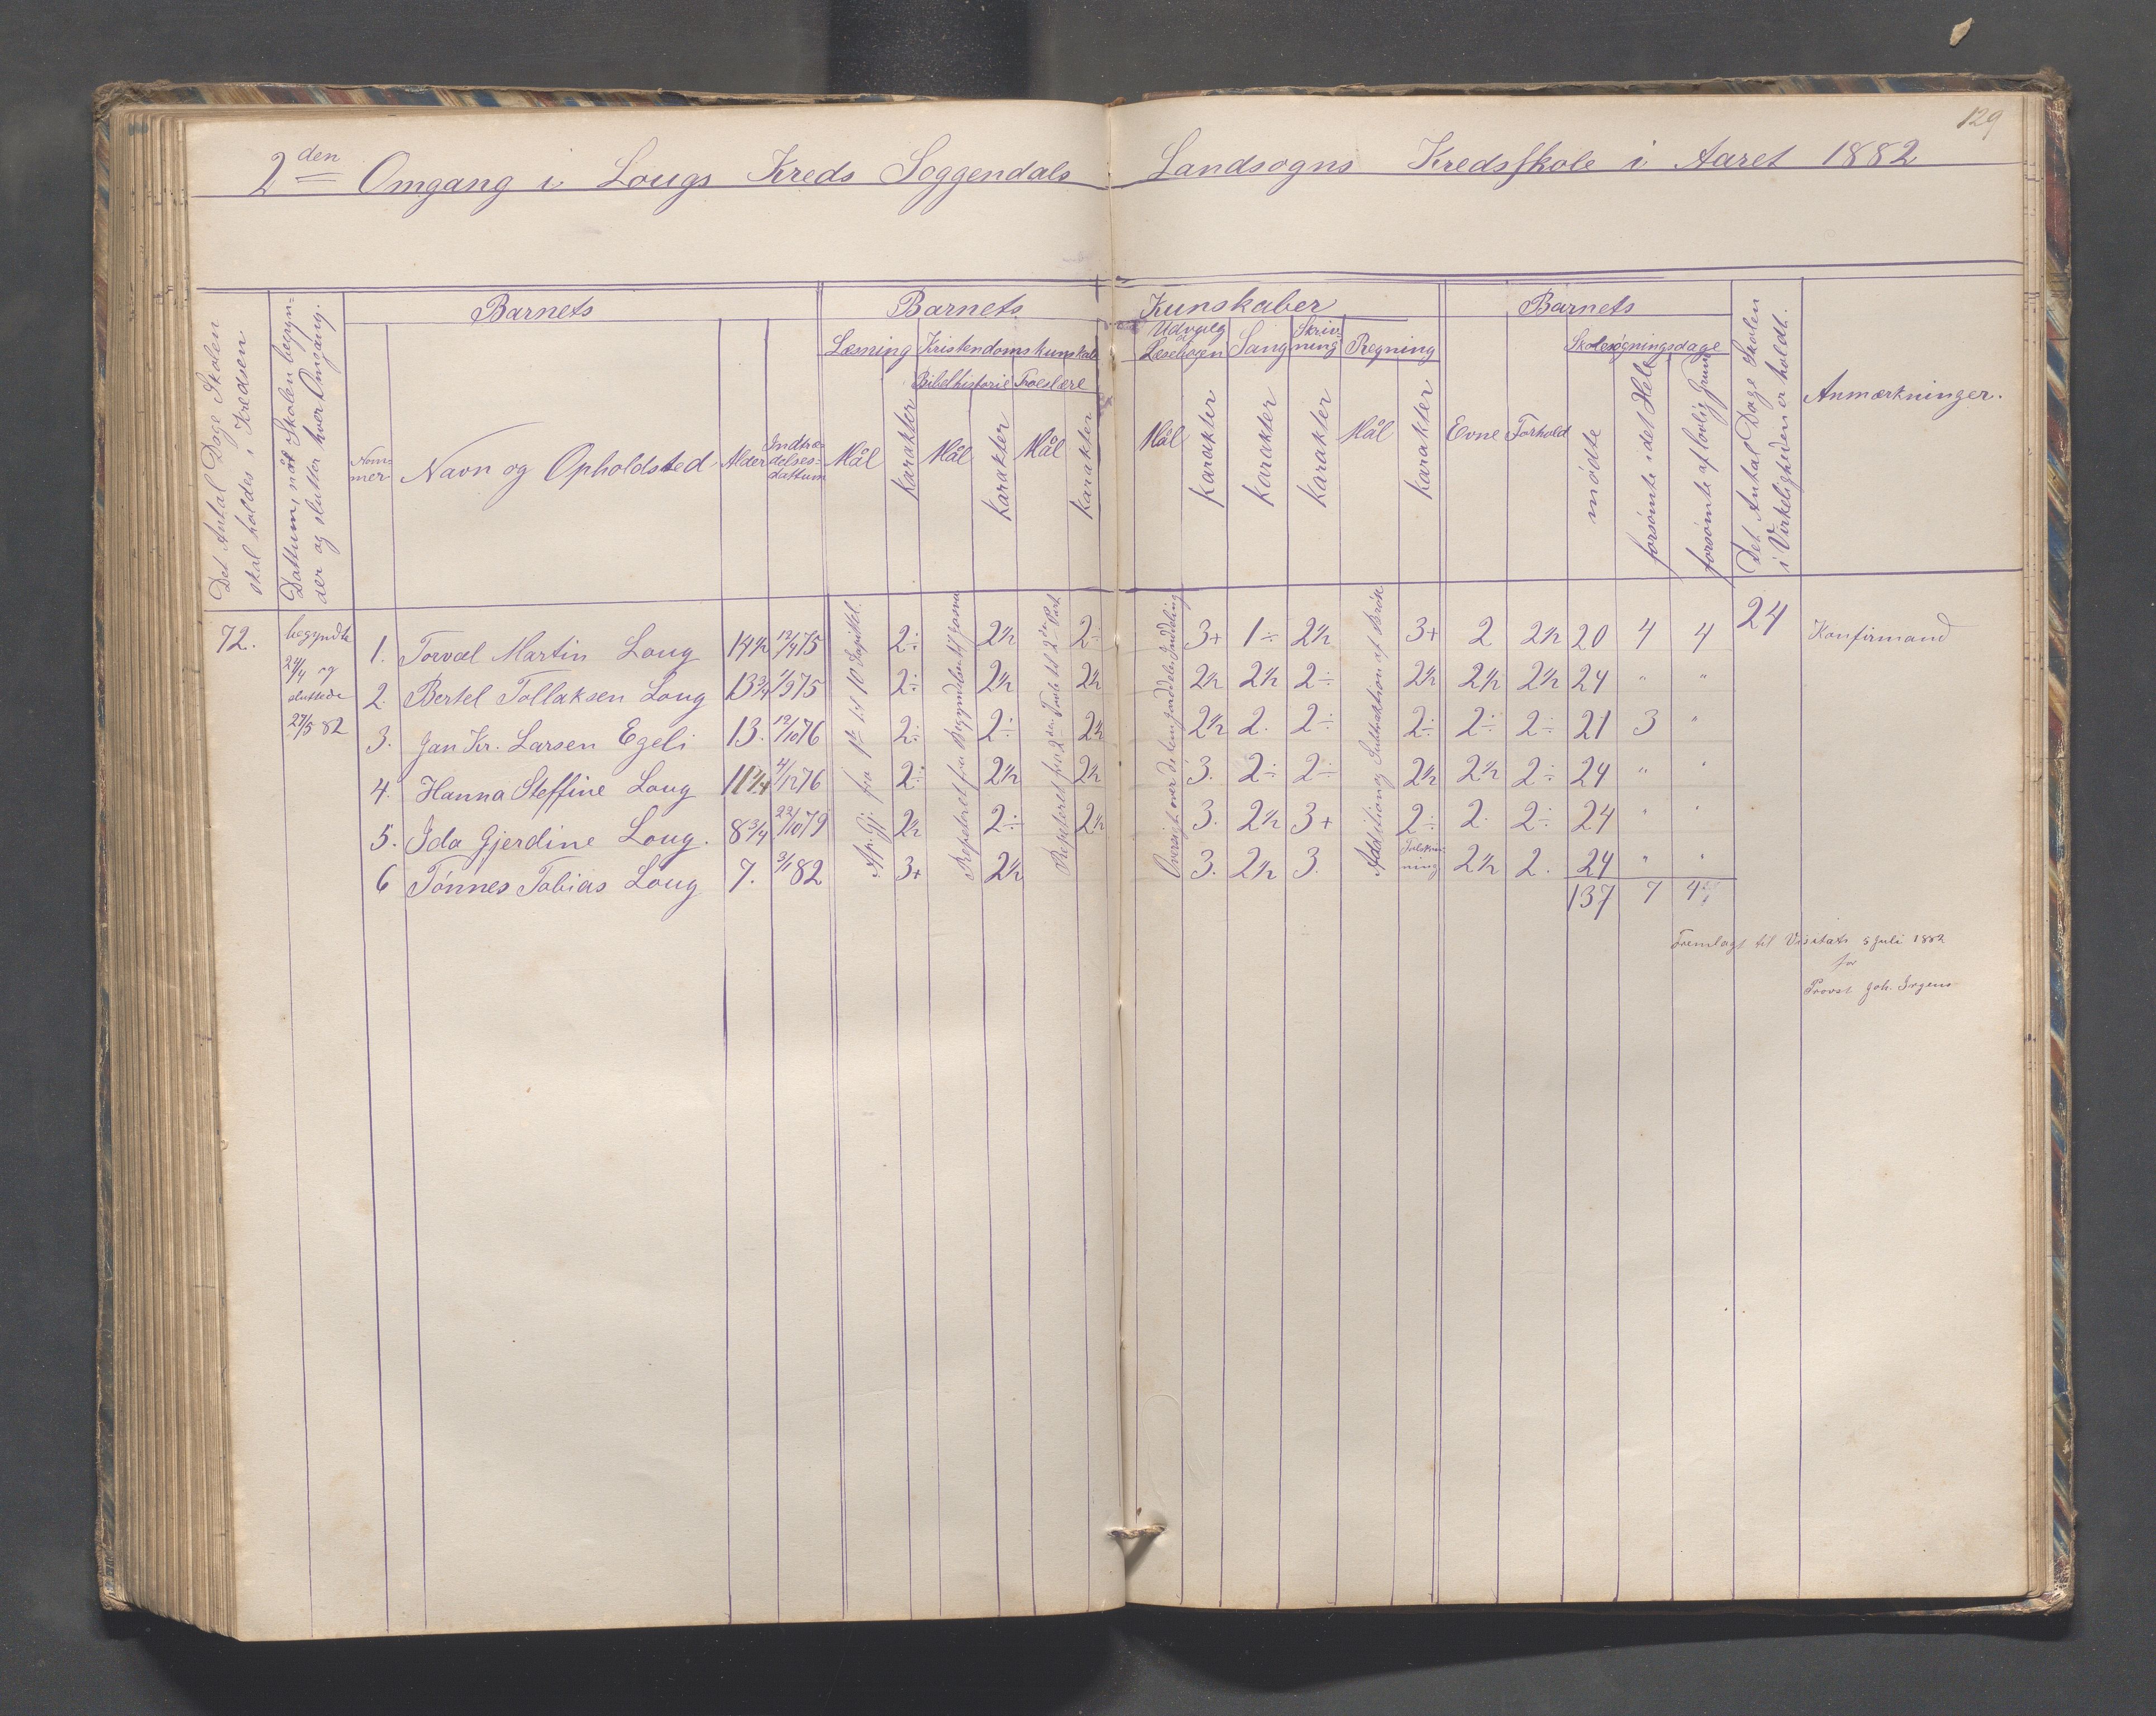 129
2den Omgang i Lougs Kreds Soggendals Landsogns Kredsskole i Aaret 1882
Det Antal Dage Skolen skal holdes i Kredsen
Dattum, når Skolen begyn-
der og slutter hver Omgang.
Barnets
Barnets Kunskaber
Barnets
Det Antal Dage Skolen
i Virkeligheden er holdt.
Anmærkninger.
Nom-
mer
Navn og Opholdsted
Alder
Indtræ-
delses-
dattum
Læsning
Kristendomskunskab
Bibelhistorie Troeslære
Udvalg af Læsebogen
Sang
Skriv-
ning
Regning
Mål Karakter Mål Karakter Mål Karakter
Mål Karakter Karakter Karakter Mål Karakter
Evne Forhold
Skolesøgningsdage
mødte
forsømte i det Hele
forsømte af lovlig Grund
72.
begyndte
24/4 og
sluttede
27/5 82
fra 1te til 10 Kapitel.
Repeteret fra Begyndelsen til
Repeteret fra til 2den Part
Oversigt over de Inddeling
Addition og Subtraktion af Brøk
1. Torval Martin Loug 14½ 12/4 75 2÷ 2½ 2÷ 3+ 1÷ 2½ 3+ 2 2½ 20 4 4 24 Konfirmand
2. Bertel Tollaksen Loug 13¾ 1/9 75 2÷ 2½ 2½ 2½ 2½ 2÷ 2½ 2½ 2½ 24 " "
3. Jan Kr. Larsen Egeli 13. 12/10 76 2÷ 2÷ 2½ 2½ 2. 2÷ 2÷ 2÷ 2÷ 21 3 "
4. Hanna Steffine Loug 11¼ 4/12 76 2÷ 2½ 2½ 3. 2÷ 2÷ 2½ 2½ 2÷ 24 " "
5. Ida Gjerdine Loug. 8¾ 22/10 79 2½ 2÷ 2½ 3. 2½ 3+ 2÷ 2. 2÷ 24 " "
6 Tónnes Tobias Loug 7. 3/1 82 3+ 2½ 3. 2½ 3. 2½ 2. 24 " "
137 7 4
Fremlagt til Visitats 5 Juli 1882
for
Provst Joh. Irgens